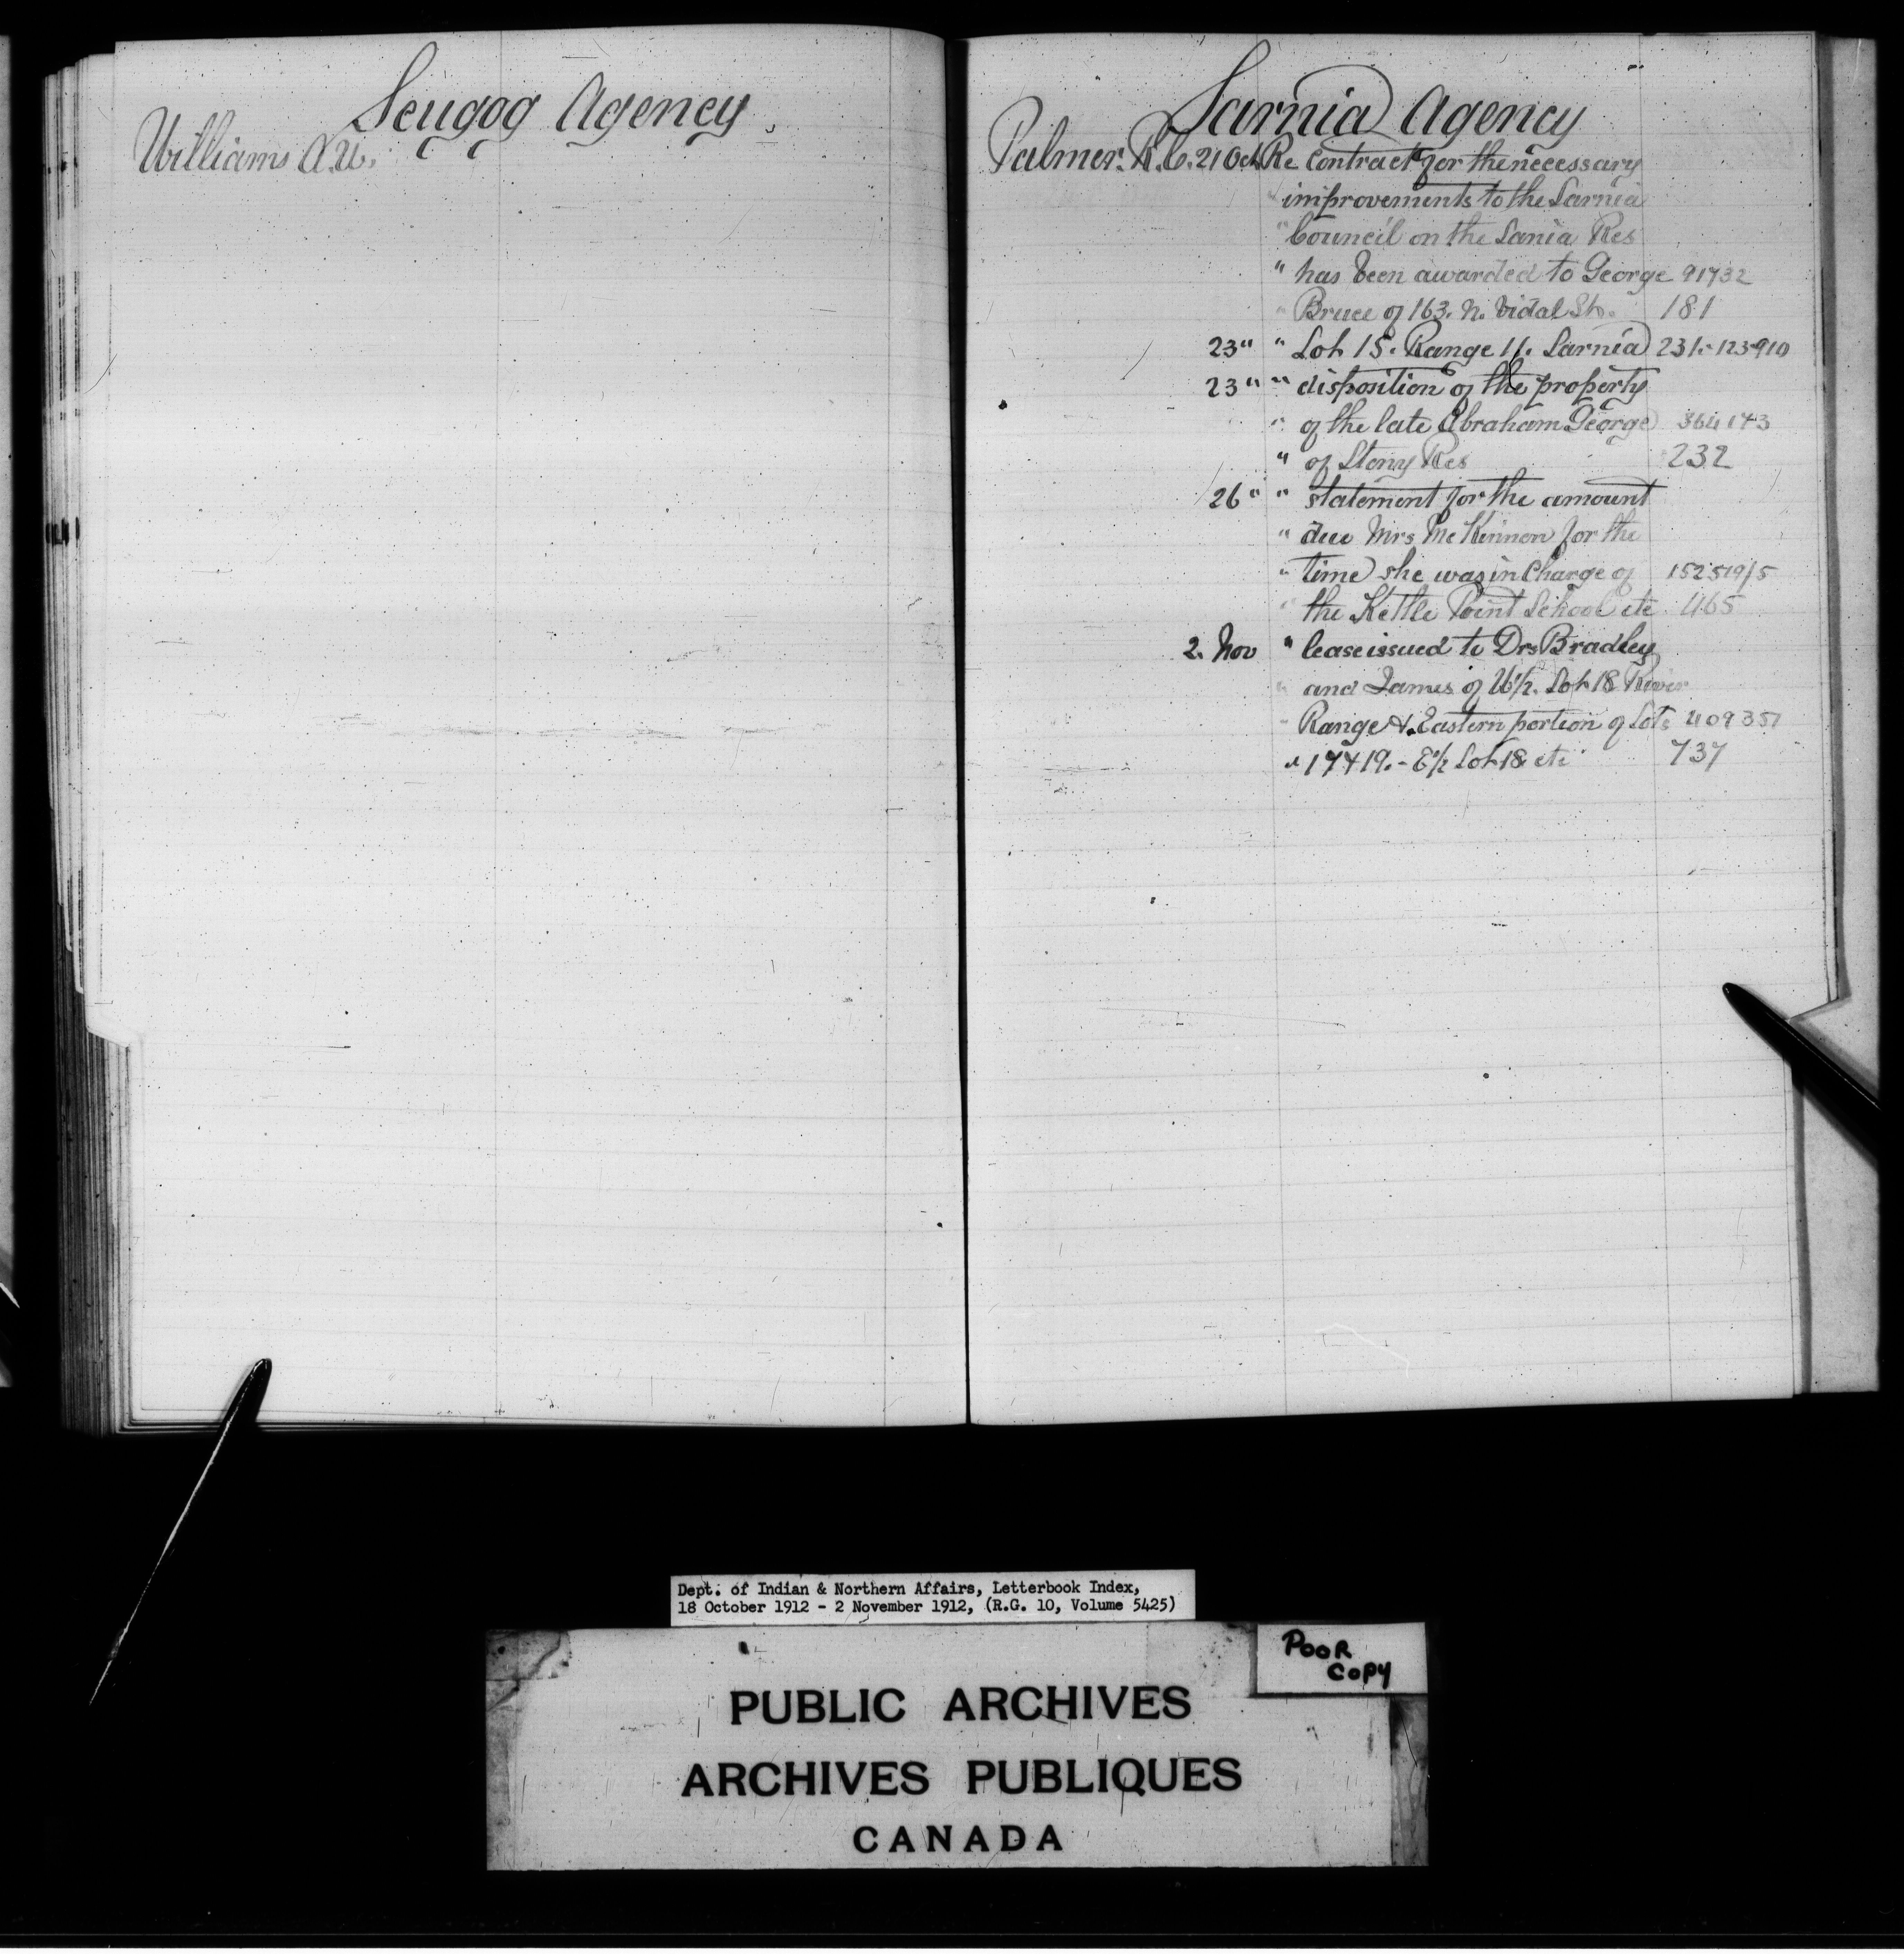 Scugog Agency
Williams A.W.
Sarnia Agency
Palmer. R.C. 21 Oct Re Contract for the necessary
" improvements to the Sarnia
" Council on the Sania Res
" has been awarded to George 91732
" Bruce of 163. N. Vidal St. 181
23 " " Lot 15. Range 11. Sarnia 231.-123910
23 " " disposition of the property
" of the late Abraham George 364143
" of Stony Res 232
26 " " statement for the amount
" due Mrs McKinnon for the
" time she was in Charge of 152519/5
" the Kettle Point School etc 465
2. Nov " lease issued to Drs Bradley
" and James of W½. Lot 18 River
" Range & Eastern portion of Lots 409351
" 17 & 19. - E½ Lot 18 etc 737
Dept. of Indian & Northern Affairs, Letterbook Index,
18 October 1912 - 2 November 1912, (R.G. 10, Volume 5425)
POOR
COPY
PUBLIC ARCHIVES
ARCHIVES PUBLIQUES
CANADA